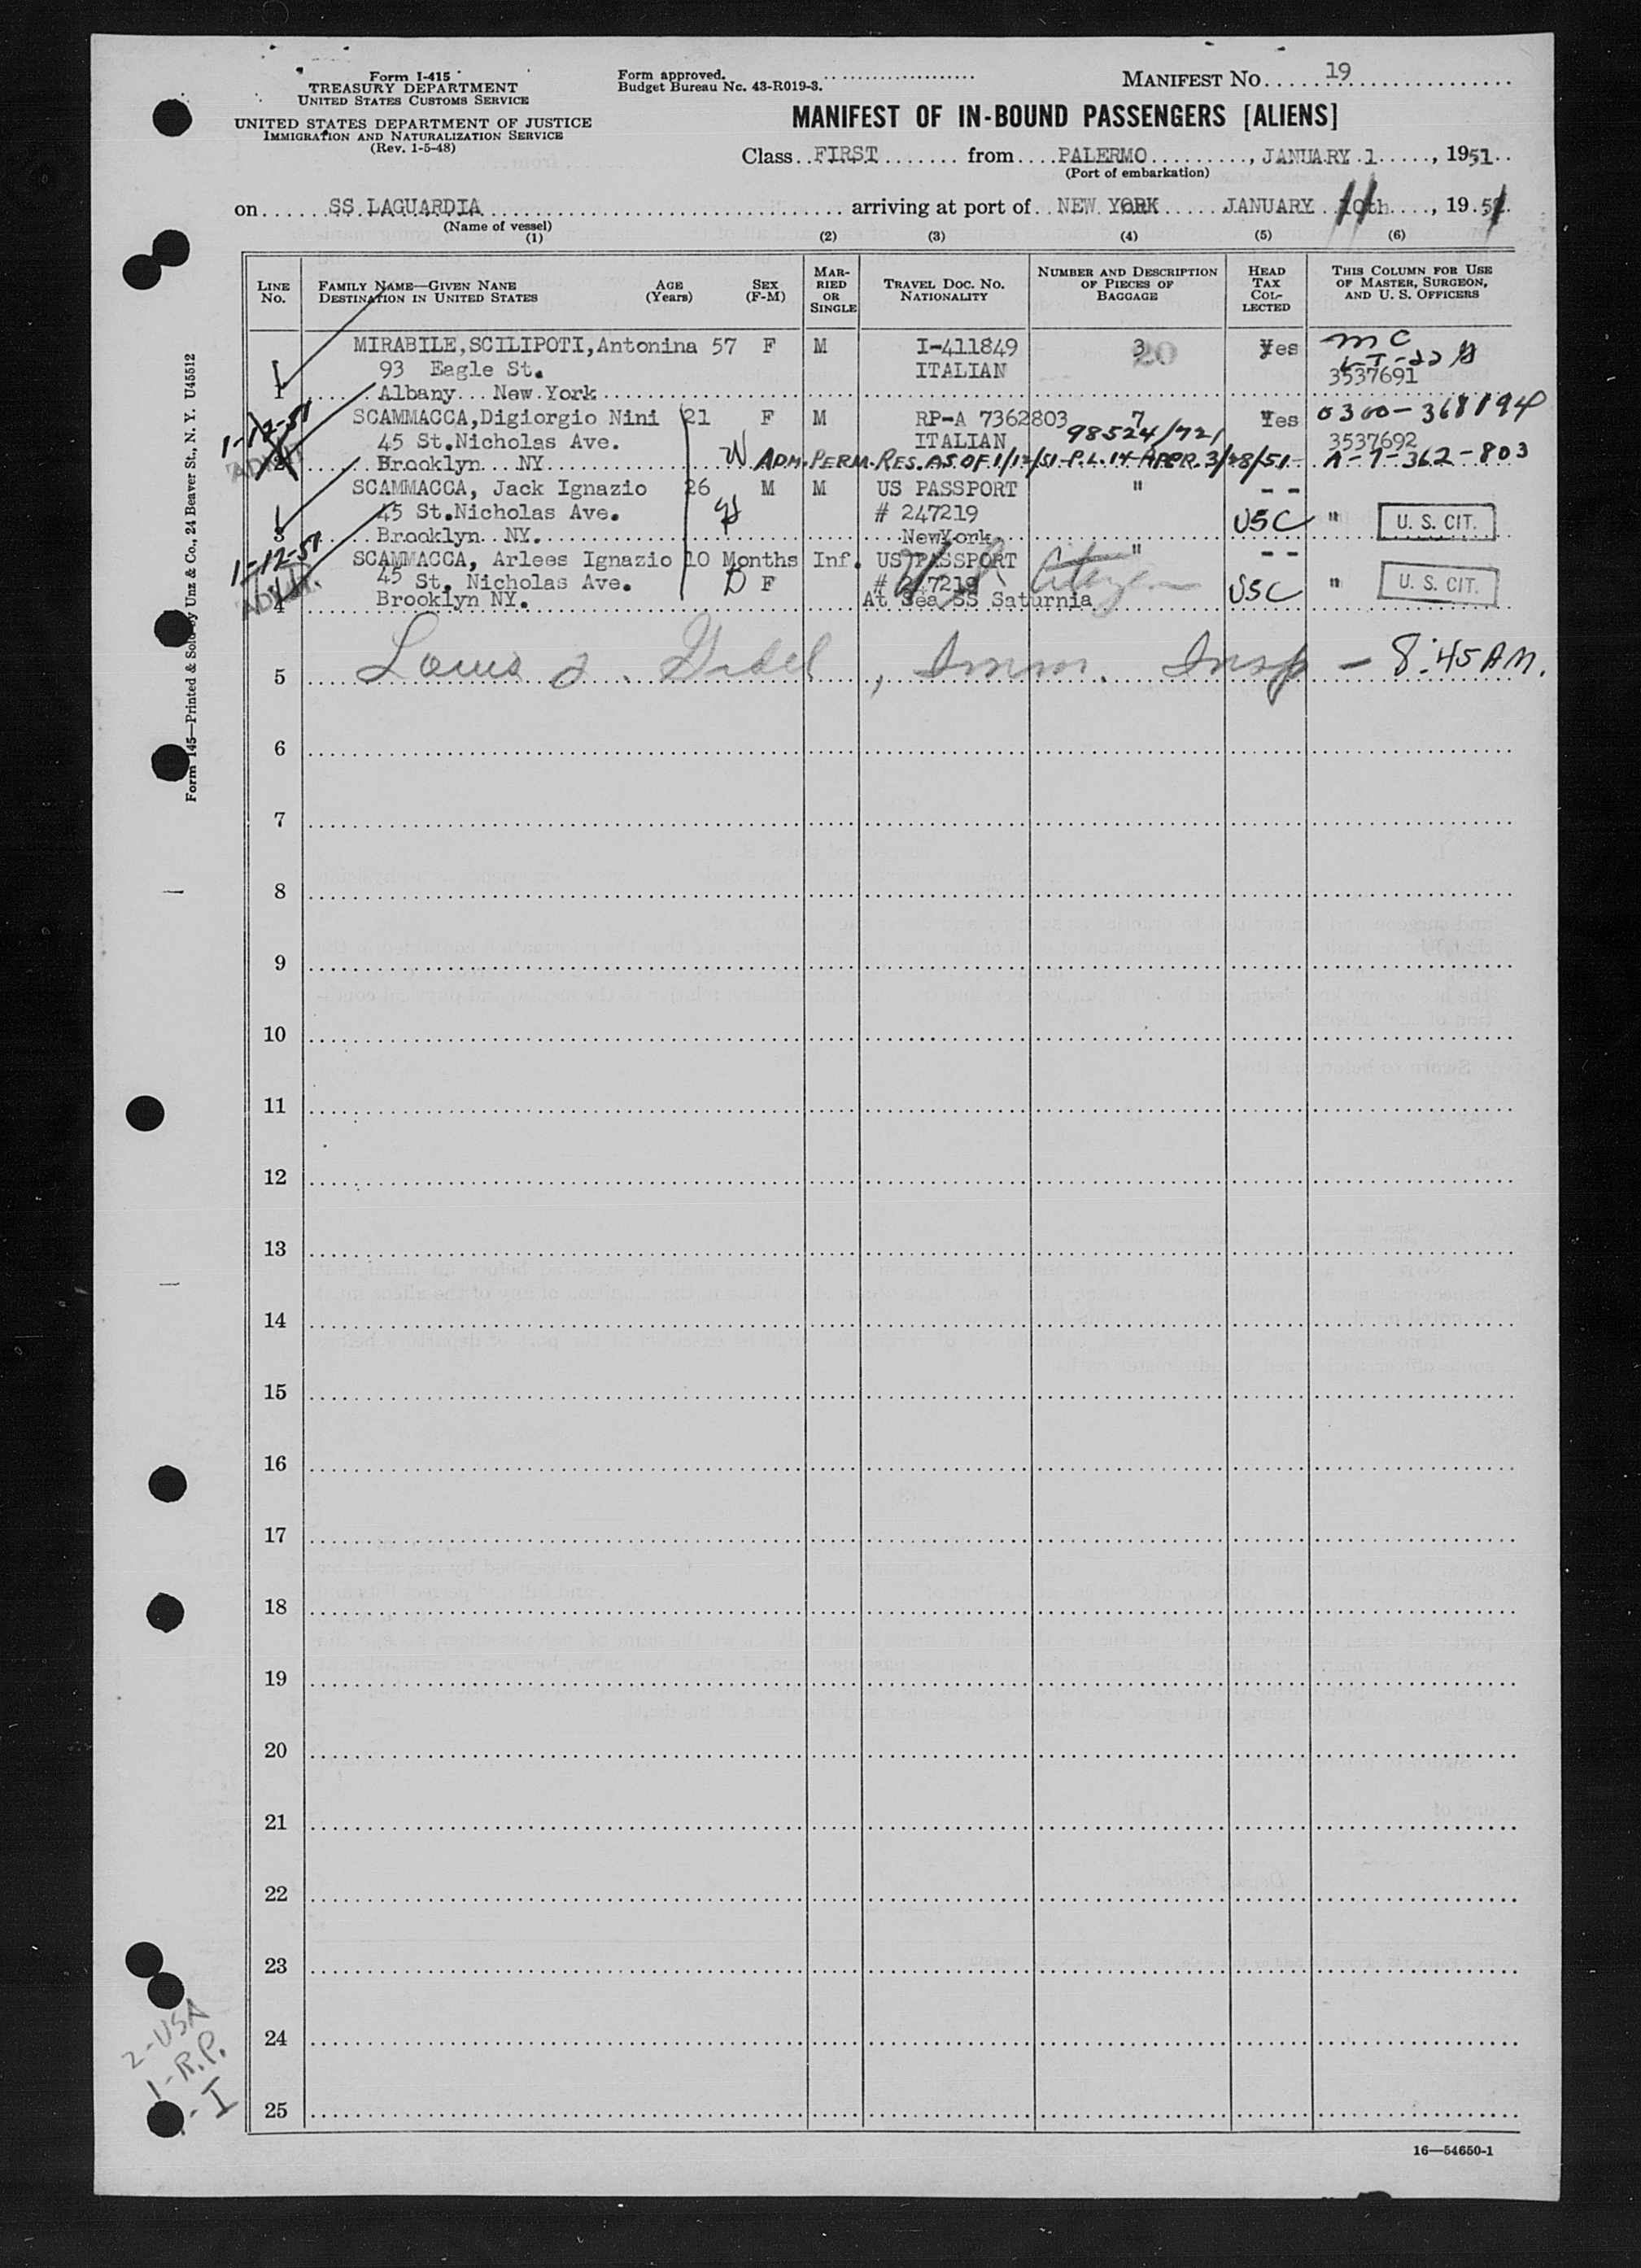 Form I-415
TREASURY DEPARTMENT
UNITED STATES CUSTOMS SERVICE
UNITED STATES DEPARTMENT OF JUSTICE
IMMIGRATION AND NATURALIZATION SERVICE
(Rev. 1-5-48)
Form approved.
Budget Bureau No. 43-R019-3.
MANIFEST NO. 19
MANIFEST OF IN-BOUND PASSENGERS [ALIENS]
Class FIRST from PALERMO, JANUARY 1, 1951
(Port of embarkation)
on SS LAGUARDIA arriving at port of NEW YORK JANUARY 11, 1951
(Name of vessel)
(1) (2) (3) (4) (5) (6)
LINE NO. FAMILY NAME—GIVEN NANE DESTINATION IN UNITED STATES AGE (Years) SEX (F-M) MARRIED OR SINGLE TRAVEL DOC. NO. NATIONALITY NUMBER AND DESCRIPTION OF PIECES OF BAGGAGE HEAD TAX COLLECTED THIS COLUMN FOR USE OF MASTER, SURGEON, AND U. S. OFFICERS
MIRABILE,SCILIPOTI,Antonina 57 F M I-411849 3 20 Yes MC
93 Eagle St. ITALIAN 3537691
1 Albany New York
1-12-51 SCAMMACCA,Digiorgio Nini 21 F M RP-A 7362803 7 Yes 0300-368194
45 St.Nicholas Ave. ITALIAN 98524/721 3537692
2 Brooklyn NY ADM. PERM. RES. AS OF 1/12/51-P.L. 14 APPR. 3/28/51- A-7-362-803
SCAMMACCA, Jack Ignazio 26 M M US PASSPORT " - -
45 St.Nicholas Ave. # 247219 USC " U. S. CIT.
3 Brooklyn NY. NewYork
1-12-51 SCAMMACCA, Arlees Ignazio 10 Months Inf. US PASSPORT " - -
45 St. Nicholas Ave. D F # 247219 U.S. Citizen USC " U. S. CIT.
4 Brooklyn NY. At Sea SS Saturnia
5 Louis , Imm. Insp - 8:45 AM.
6
7
8
9
10
11
12
13
14
15
16
17
18
19
20
21
22
23
24
25
16—54650-1
Form 145—Printed & Sold by Unz & Co., 24 Beaver St., N. Y. U45512
2-USA
1-R.P.
- I